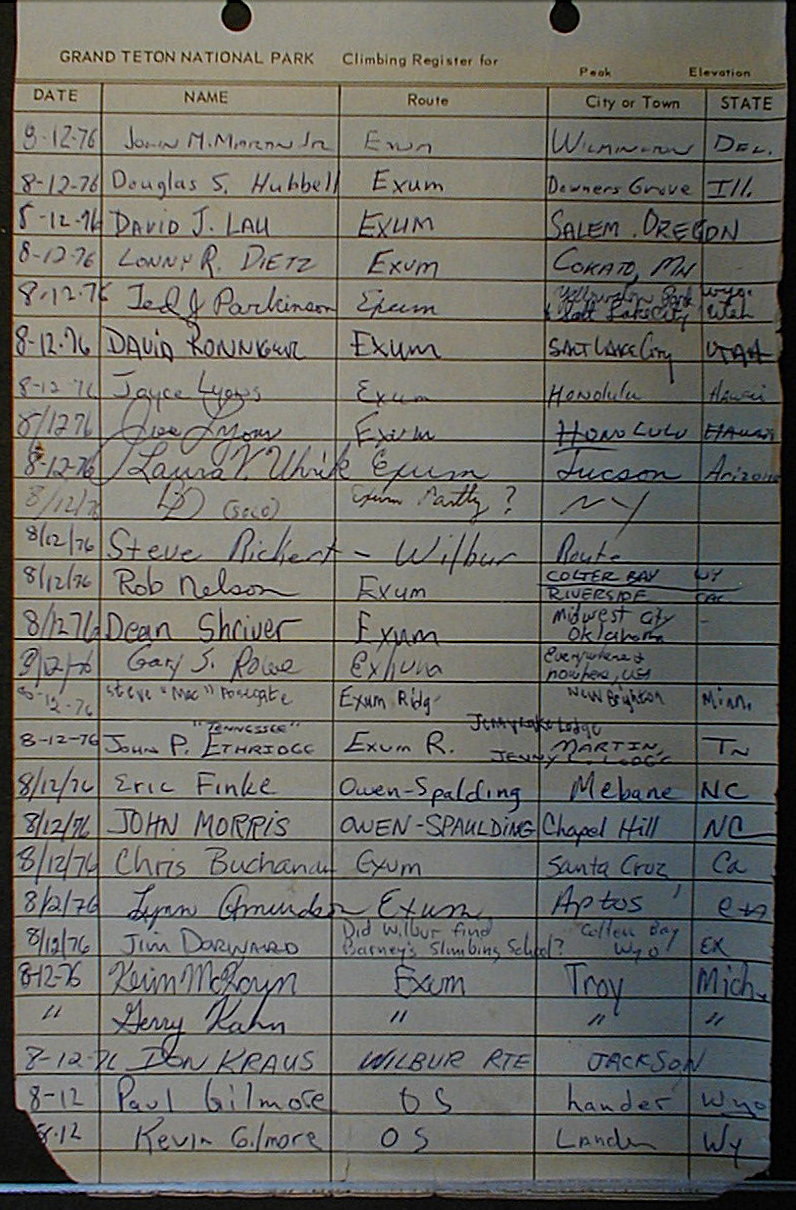 GRAND TETON NATIONAL PARK Climbing Register for
Peak Elevation
DATE NAME Route City or Town STATE
8-12-76 John M. Exum Wilmington Del.
8-12-76 Douglas S. Hubbell Exum Downers Grove Ill.
8-12-76 DAVID J. LAU EXUM SALEM. OREGON
8-12-76 LONNY R. DIETZ Exum COKATO, MN
8-12-76 Ted J Parkinson Exum Yellowstone Park Wyo.
& Salt Lake City Utah
8-12-76 DAVID Exum SALT LAKE City UTAH
8-12-76 Joyce Lyons Exum Honolulu Hawaii
8/12 76 Joe Lyons Exum HONOLULU HAWAII
8-12-76 Laura V. Uhrik Exum Tucson Arizona
8/12/76 (solo) Exum Partly? NY
8/12/76 Steve Rickert - Wilbur Route
8/12/76 Rob Nelson Exum COLTER BAY WY
RIVERSIDE CAL
8/12 76 Dean Shriver Exum Midwest City -
Oklahoma
8/12/76 Gary S. Rowe Exhum Everywhere &
nowhere, USA
8-12-76 Steve "Mac" Exum Ridg New Brighton Minn.
"TENNESSEE" Jenny Lake Lodge
8-12-76 JOHN P. ETHRIDGE Exum R. MARTIN, TN
JENNY L. LODGE
8/12/76 Eric Finke Owen-Spalding Mebane NC
8/12/76 JOHN MORRIS OWEN-SPAULDING Chapel Hill NC
8/12/76 Chris Buchanan Exum Santa Cruz Ca
8/2/76 Lynn Amundson Exum Aptos, Ca
8/12/76 Jim DORWARD Did Wilbur find Colter Bay
Barney's Slimbing School? Wyo EX
8-12-76 Kevin Exum Troy Mich.
" Gerry Kahn " " "
8-12-76 DON KRAUS WILBUR RTE JACKSON
8-12 Paul Gilmore OS Lander Wyo
8-12 Kevin Gilmore OS Lander Wy